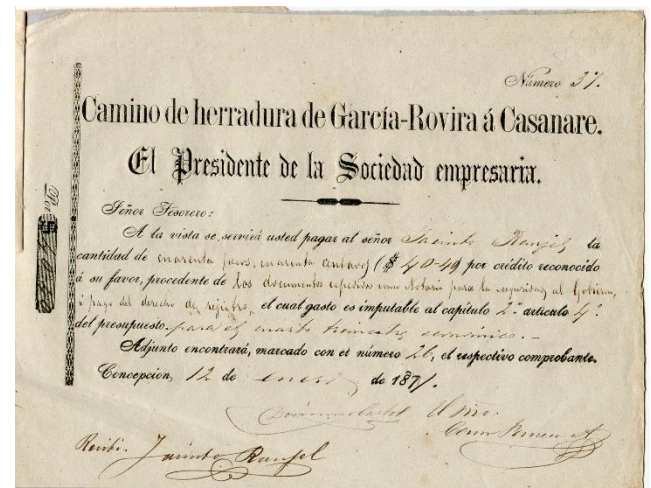 Número 37.
Camino de herradura de García-Rovira á Casanare.
El Presidente de la Sociedad empresaria.
Por $
Señor Tesorero:
A la vista se servirá usted pagar al señor Jacinto Ranjel la
cantidad de cuarenta pesos, cuarenta centavos ($ 40-40 por crédito reconocido
á su favor, procedente de los documentos espedidos como Notario para la seguridad al Gobierno,
i pago del derecho de rejistro, el cual gasto es imputable al capítulo 2.º artículo 4.º
del presupuesto para el cuarto trimestre económico.-
Adjunto encontrará, marcado con el número 26, el respectivo comprobante.
Concepcion, 12 de enero de 1871.
Recibí. Jacinto Ranjel